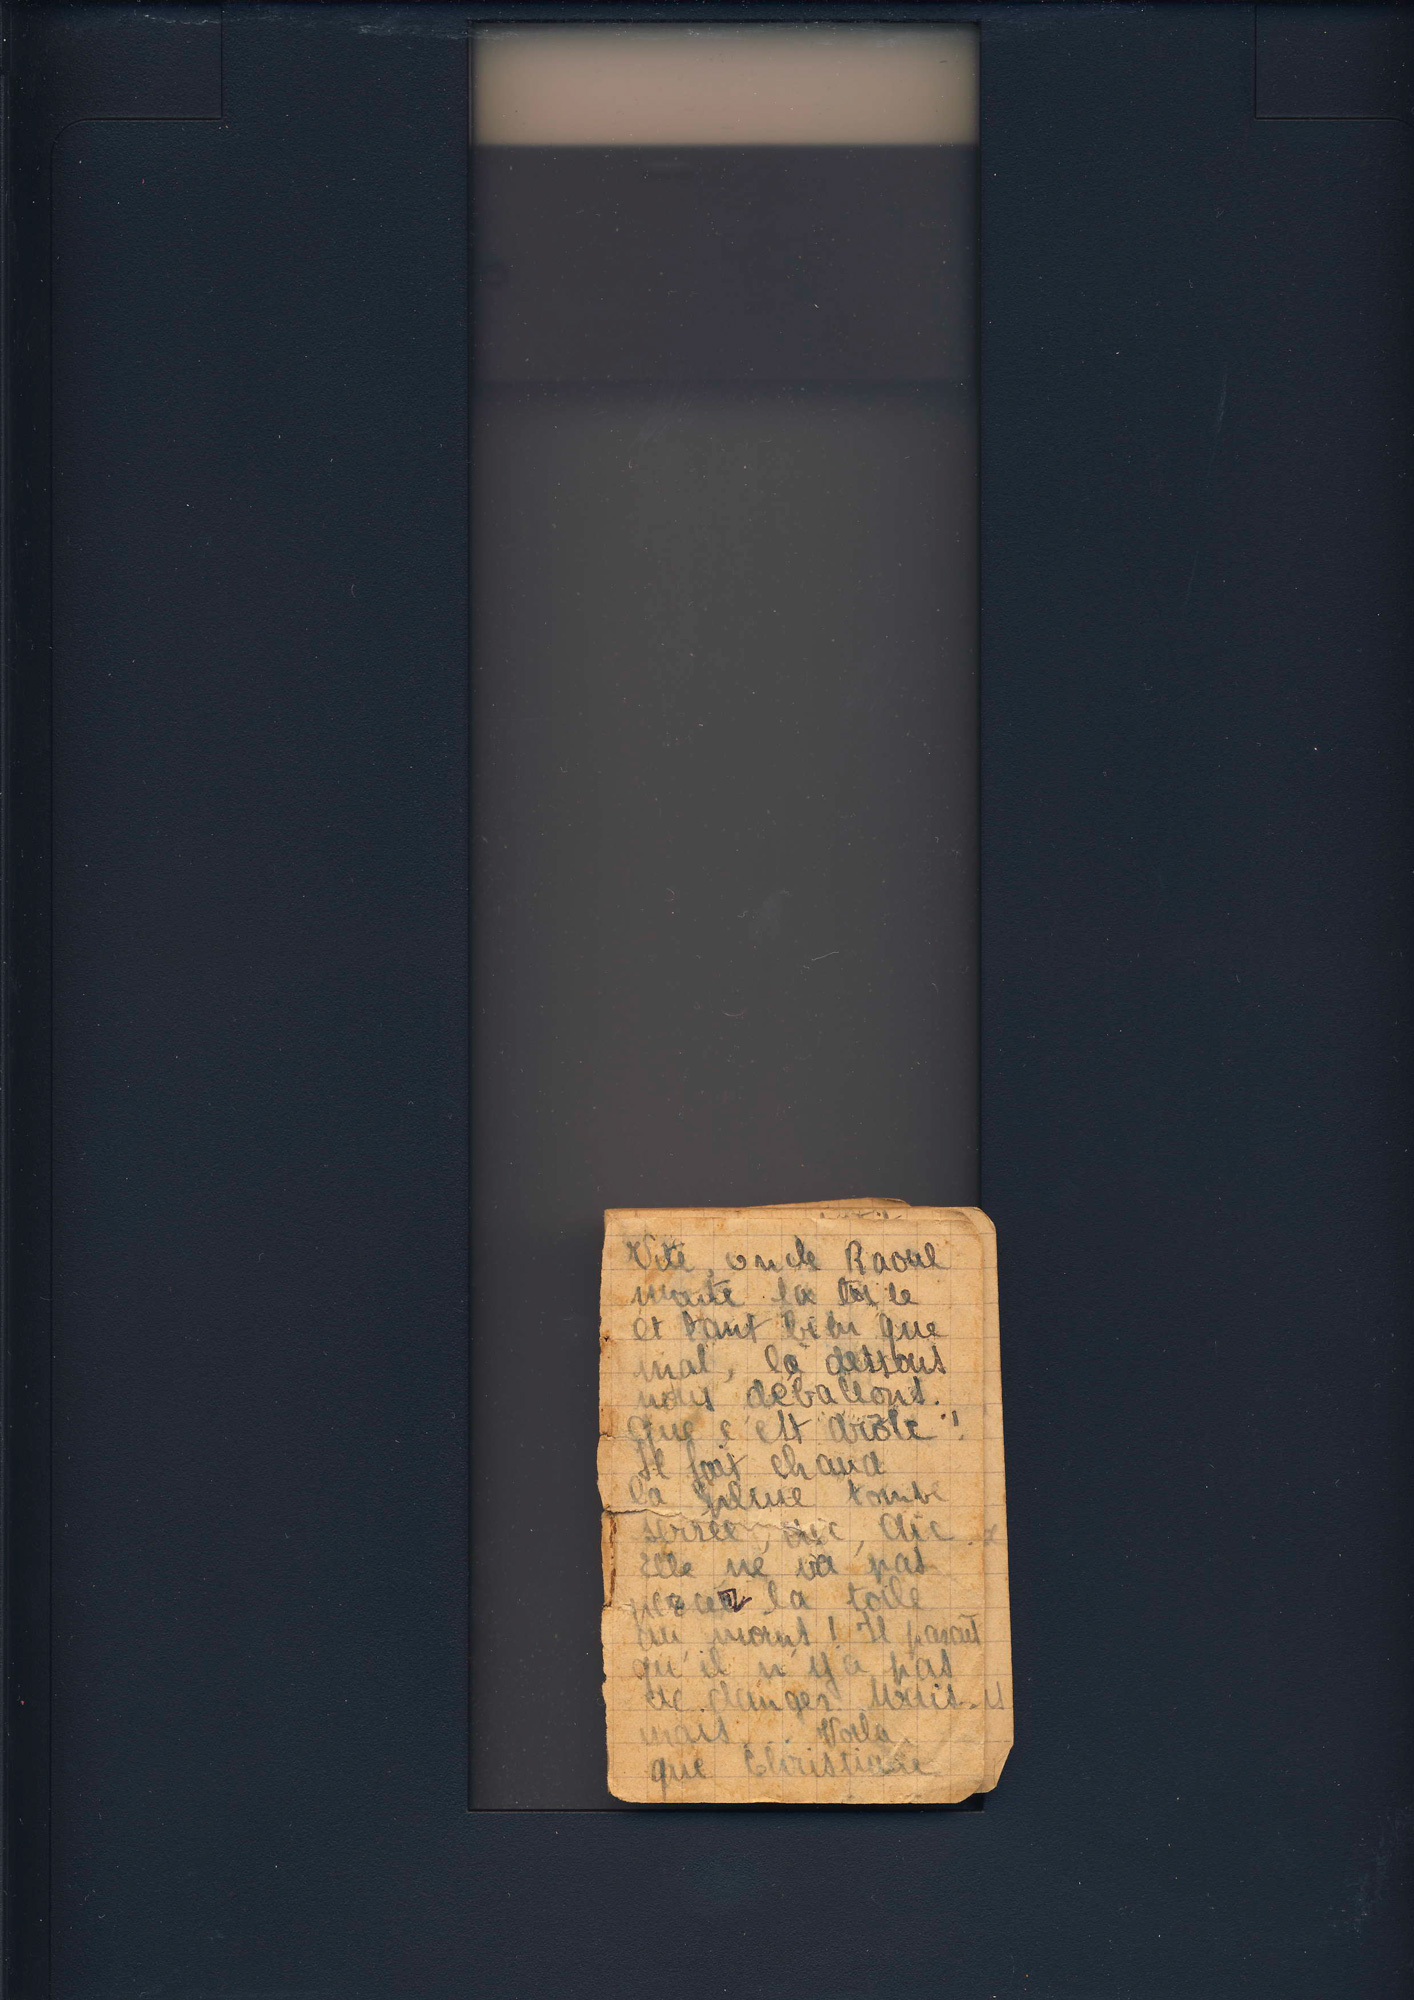 Vite, oncle Raoul
monte la toile
et tant bien que
mal, là dessous
nous déballons.
Que c'est drôle !
Il fait chaud
la pluie tombe
serrée,
Elle ne va pas
percer la toile
au moins ! Il parait
qu'il n'y a pas
de danger. Mais
mais... Voila
que Christiane